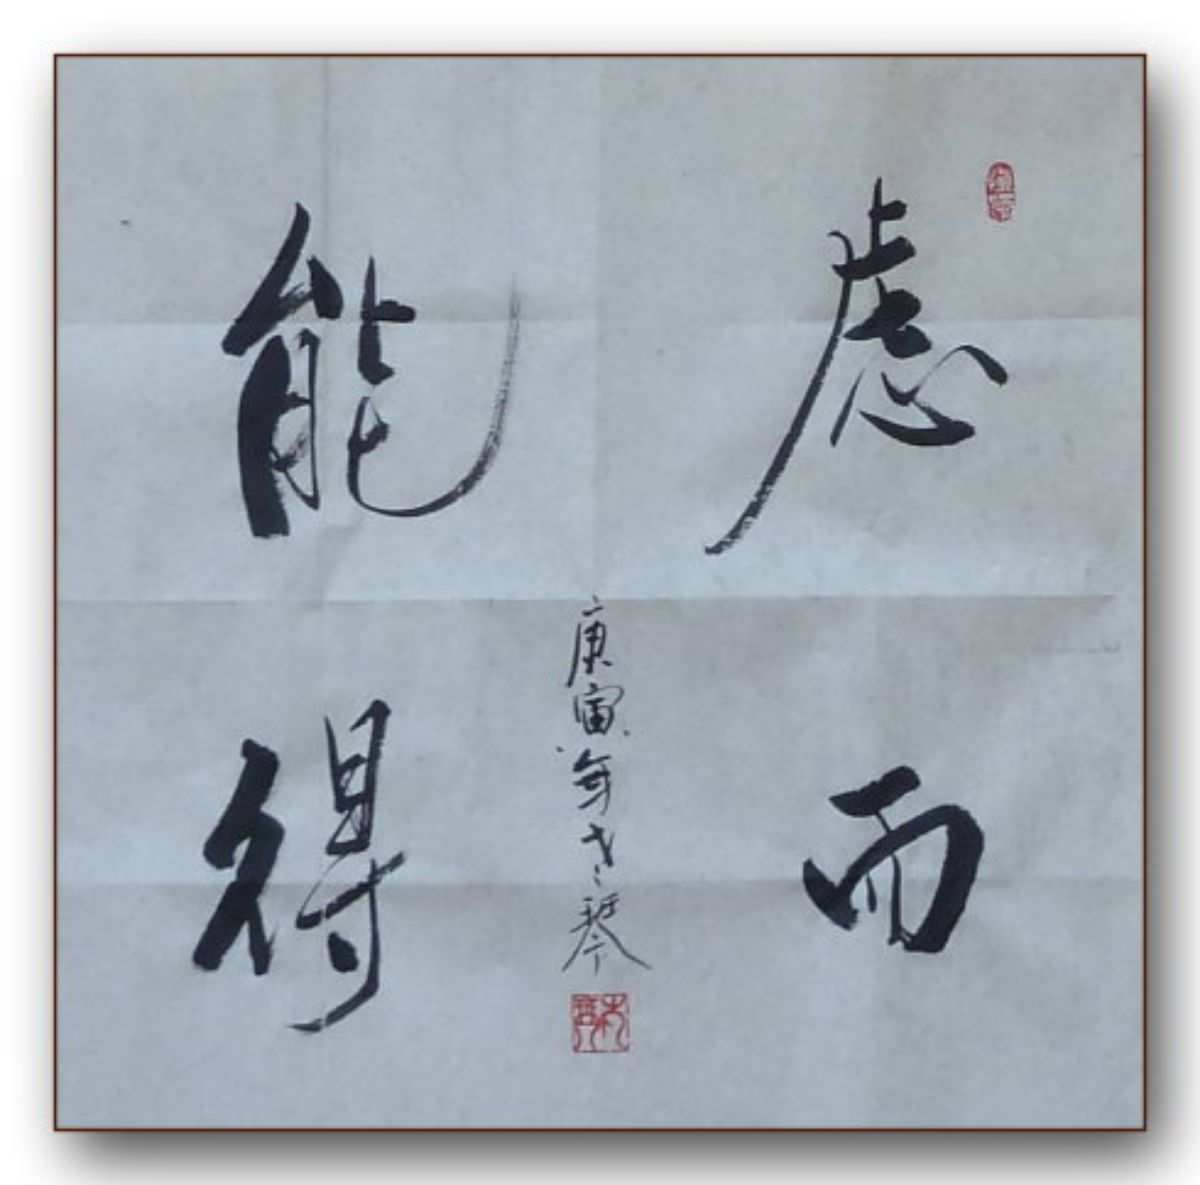 慮而
能得
庚寅年
琴